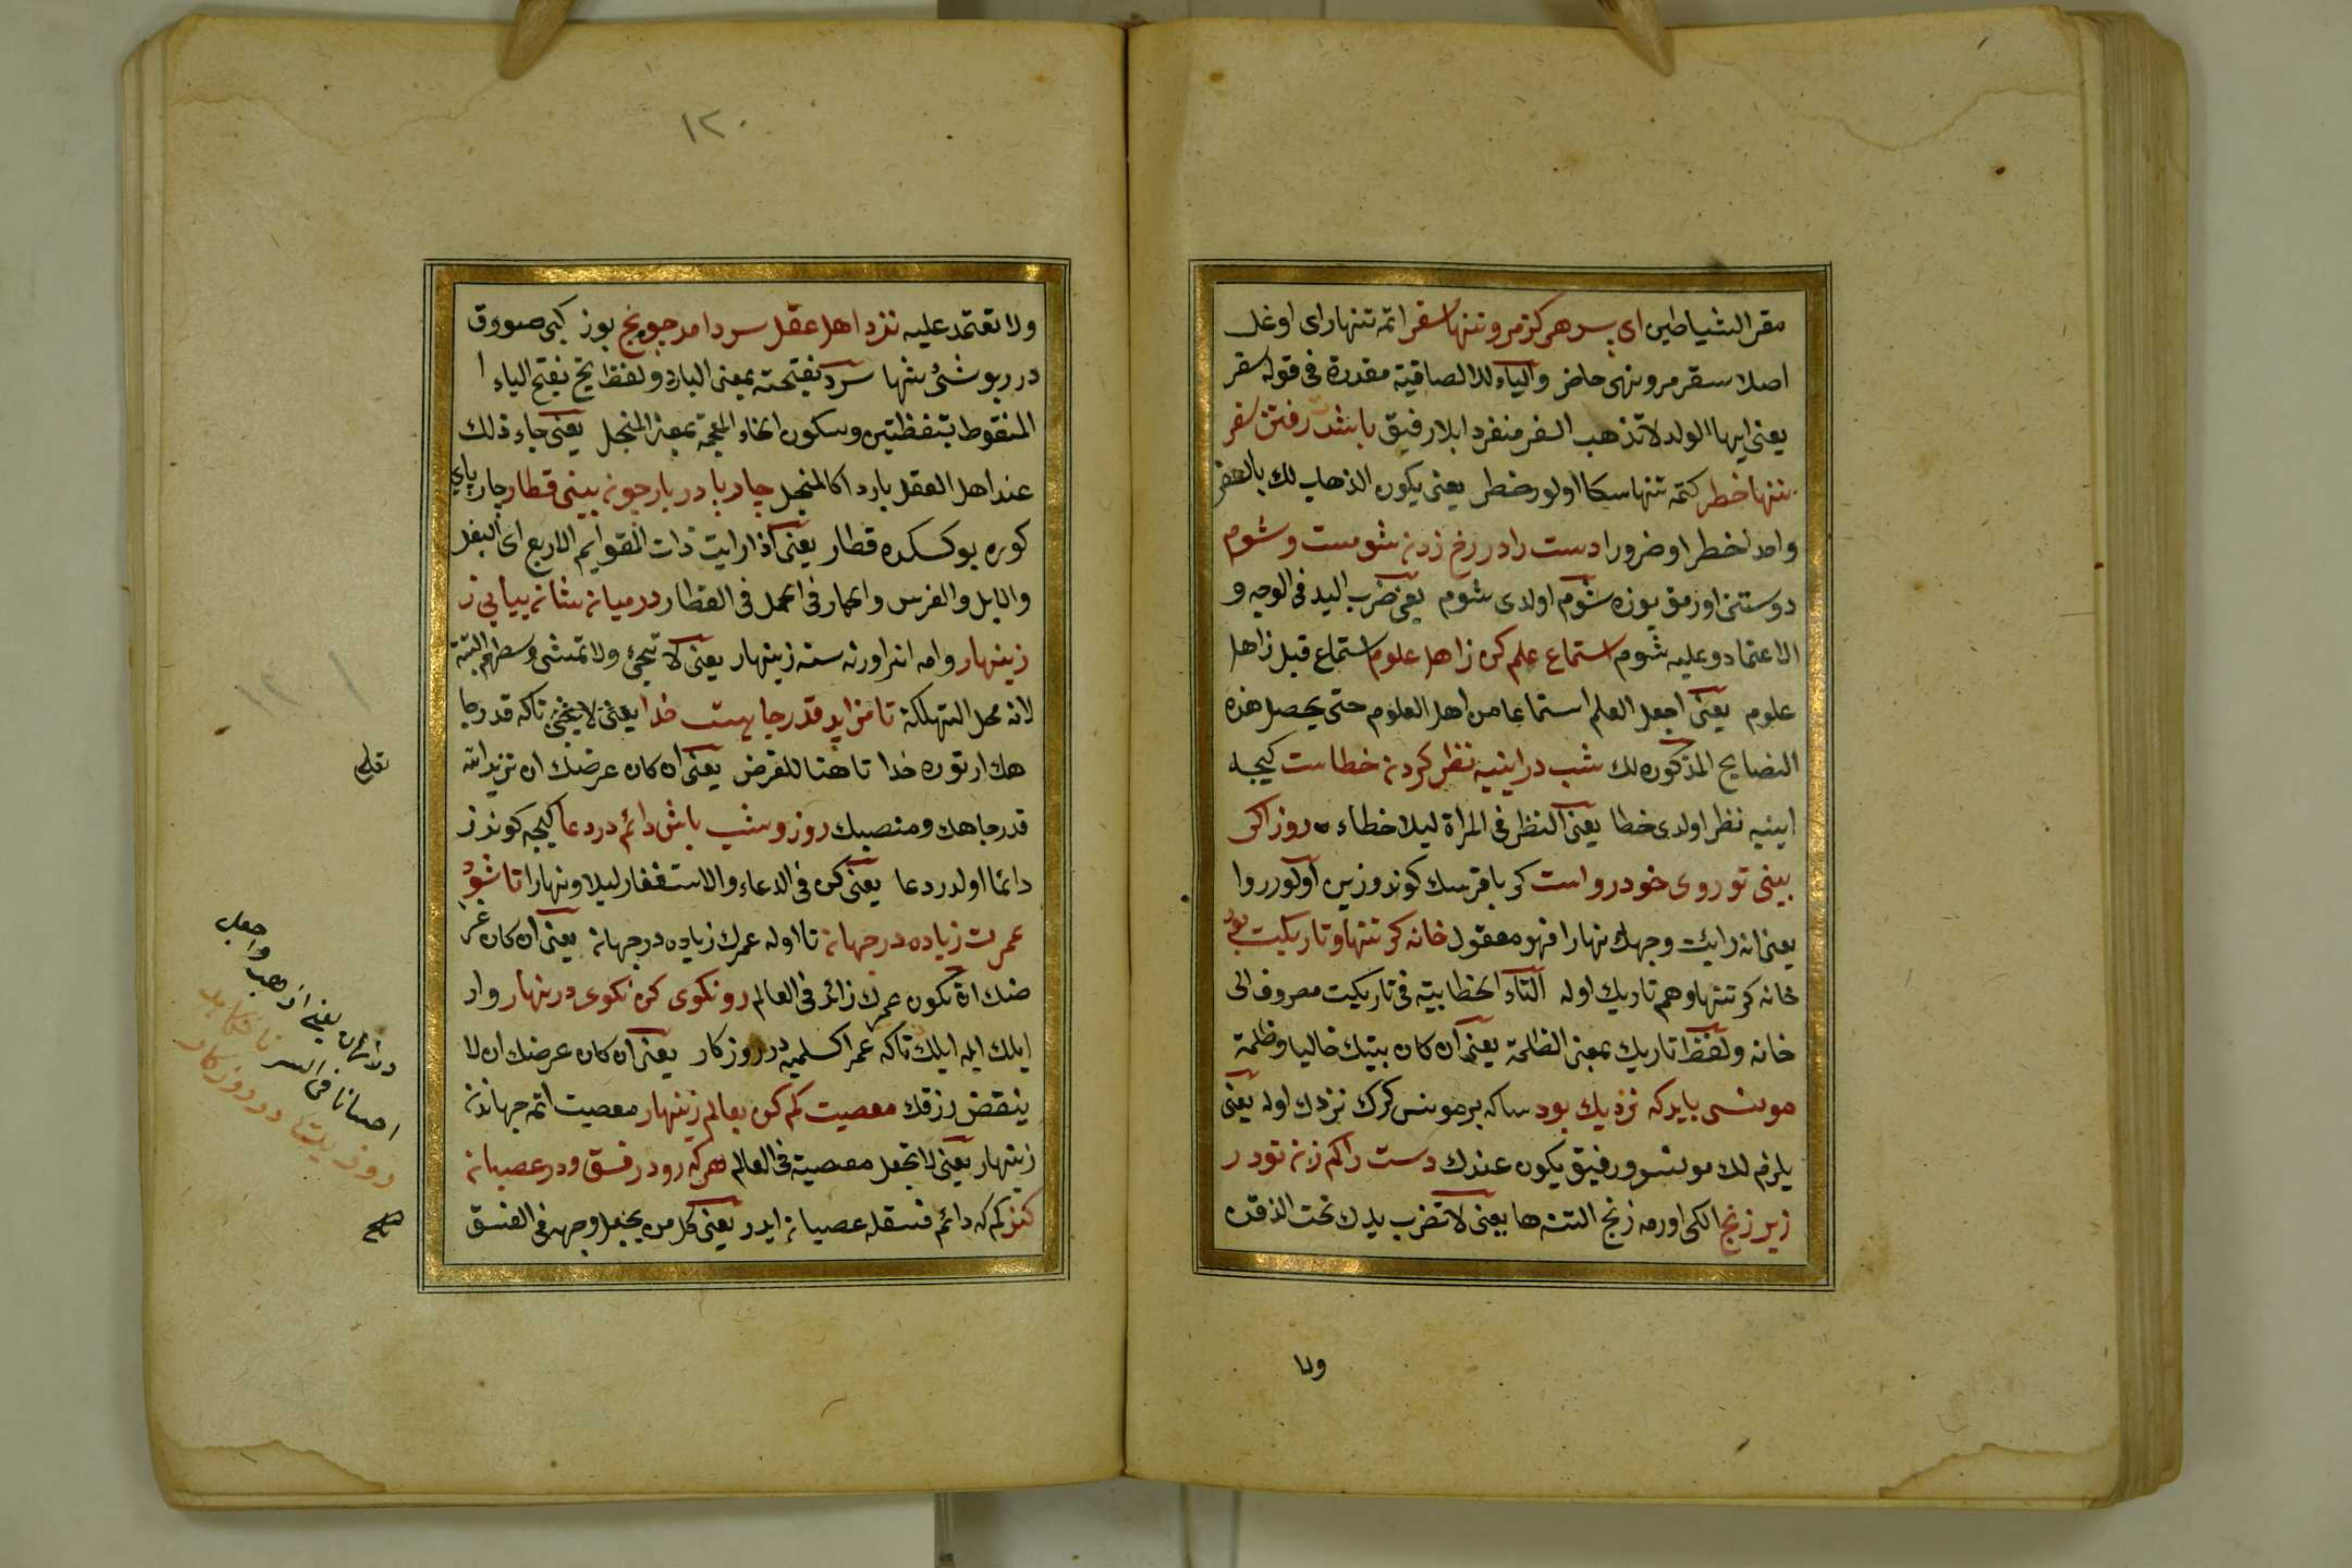 مقر الشياطين ای پسر هركز مرو تنها سفر اتمه تنها رای اوغل
اصلا سفر مرو نهی حاضر والباء للالصاقية مقدرة فی قوله سفر
يعنی ايها الولد لا تذهب السفر منفردا بلا رفيق باشدت رفتن سفر
تنها خطر كتمه تنها سكا اولور خطر يعنی يكون الذهاب لك بالسفر
واحدا خطرا وضرورا دست را در رخ زدن شومست و شوم
دوستنی اورمق يوزه شوم اولدی شوم يعنی ضرب اليد فی الوجه و
الاعتماد وعليه شوم استماع علم كن ز اهل علوم استماع قيل ز اهل
علوم يعنی اجعل العلم استماعا من اهل العلوم حتی يحصل هذه
النصايح المذكوره لك شب در اينيه نظر كردن خطاست كيجه
اينيه نظر اولدی خطا يعنی النظر فی المراة ليلا خطاء روز اكر
بينی تو روی خود رواست كر باقرسك كوندوزين اولور روا
يعنی انه رايت وجهك نهارا فهو معقول خانه كر تنها وتاريكيت بود
خانه كر تنها وهم تاريك اوله التاء الخطابية فی تاريكيت مصروف الی
خانه ولفظ تاريك بمعنی الظلمة يعنی ان كان بيتك خاليا وظلمة
مونسی بايد كه نزديك بود ساكه بر مونس كرك نزدك اوله يعنی
يلزم لك مونس ورفيق يكون عندك دست را كم زن تو در
زير زنخ الكی اورمه زنخ التنه ها يعنی لا تضرب يدك تحت الذقن
ولا
١٢٠
ولا تعتمد عليه نزد اهل عقل سرد امد جويخ بوز كبی صووق
در بو شئ شها سرد بفتحته بمعنی البارد ولفظ يخ بفتح الياء ا
المنقوط بنقطتين وسكون الخاء المعجمة بمعنی المنجل يعنی جاء ذلك
عند اهل العقل باردا كالمنجل چارپا در بار چون بينی قطار چارپای
كوره يوكسكده قطار يعنی اذا رايت ذات القوايم الاربع ای البغل
والابل والفرس والحمار فی الحمل فی القطار در ميان شان ميايی ز
زينهار وامه انراورنه سنه زينهار يعنی لا تجئ ولا تمشی وسطهم البتة
لانه محل التهلكة تا فزايد قدر جاهت خدا يعنی لا يخفی تاكه قدر جا
هك ارتوره خدا تا هنا للغرض يعنی ان كان عرضك ان تزيد الله
قدر جاهك ومنصبك روز و شب باش دائم در دعا كيجه كوندز
دائما اولدر دعا يعنی كن فی الدعاء والاستغفار ليلا ونهارا تا شود
عمرت زياده در جهان تا اوله عمرك زياده در جهان يعنی ان كان غر
ضك ان تكون عمرك زائد فی العالم رو نكوی كن نكوی در نهار وار
ايلك ايله ايلك تاكه عمر اكسلميه در روزكار يعنی ان كان عرضك ان لا
ينقض رزقك معصيت كم كن بعالم زينهار معصيت اتمه جهاندن
زينهار يعنی لا تجعل معصية فی العالم هر كه رود در فسق ودر عصيان
كنز كم كه دائم فسقله عصيان ايدر يعنی كل من يجعل وجهه فی الفسق
يعنی اذهب واجعل
احسانا فی السر
روزيت در روزكار
صح